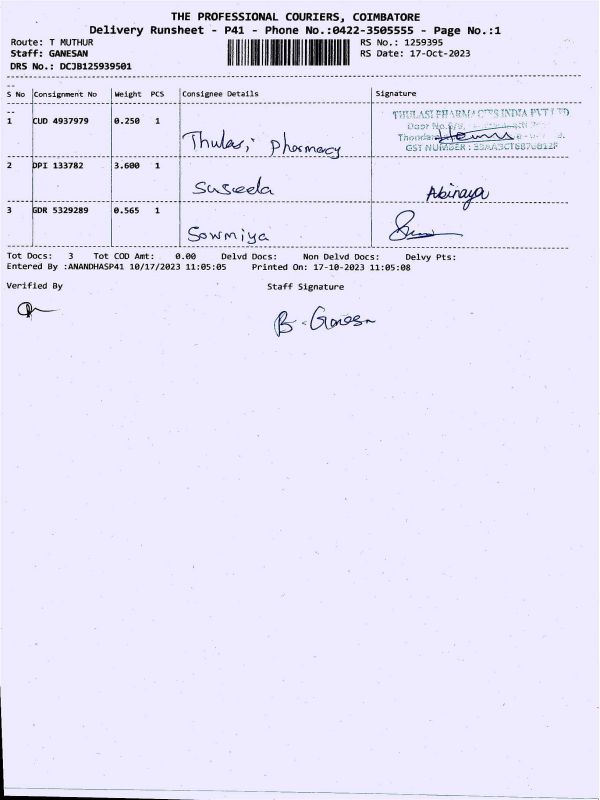 THE PROFESSIONAL COURIERS, COIMBATORE
Delivery Runsheet - P41 - Phone No.:0422-3505555 - Page No.:1
Route: T MUTHUR RS No.: 1259395
Staff: GANESAN RS Date: 17-Oct-2023
DRS No.: DCJB125939501
S No Consignment No Weight PCS Consignee Details Signature
1 CUD 4937979 0.250 1 Thulasi Pharmacy
THULASI PHARMACIES INDIA PVT LTD
Door No.
GST NUMBER :
2 DPI 133782 3.600 1 Suseela Abinaya
3 GDR 5329289 0.565 1 Sowmiya
Tot Docs: 3 Tot COD Amt: 0.00 Delvd Docs: Non Delvd Docs: Delvy Pts:
Entered By :ANANDHASP41 10/17/2023 11:05:05 Printed On: 17-10-2023 11:05:08
Verified By Staff Signature
B. Ganesan